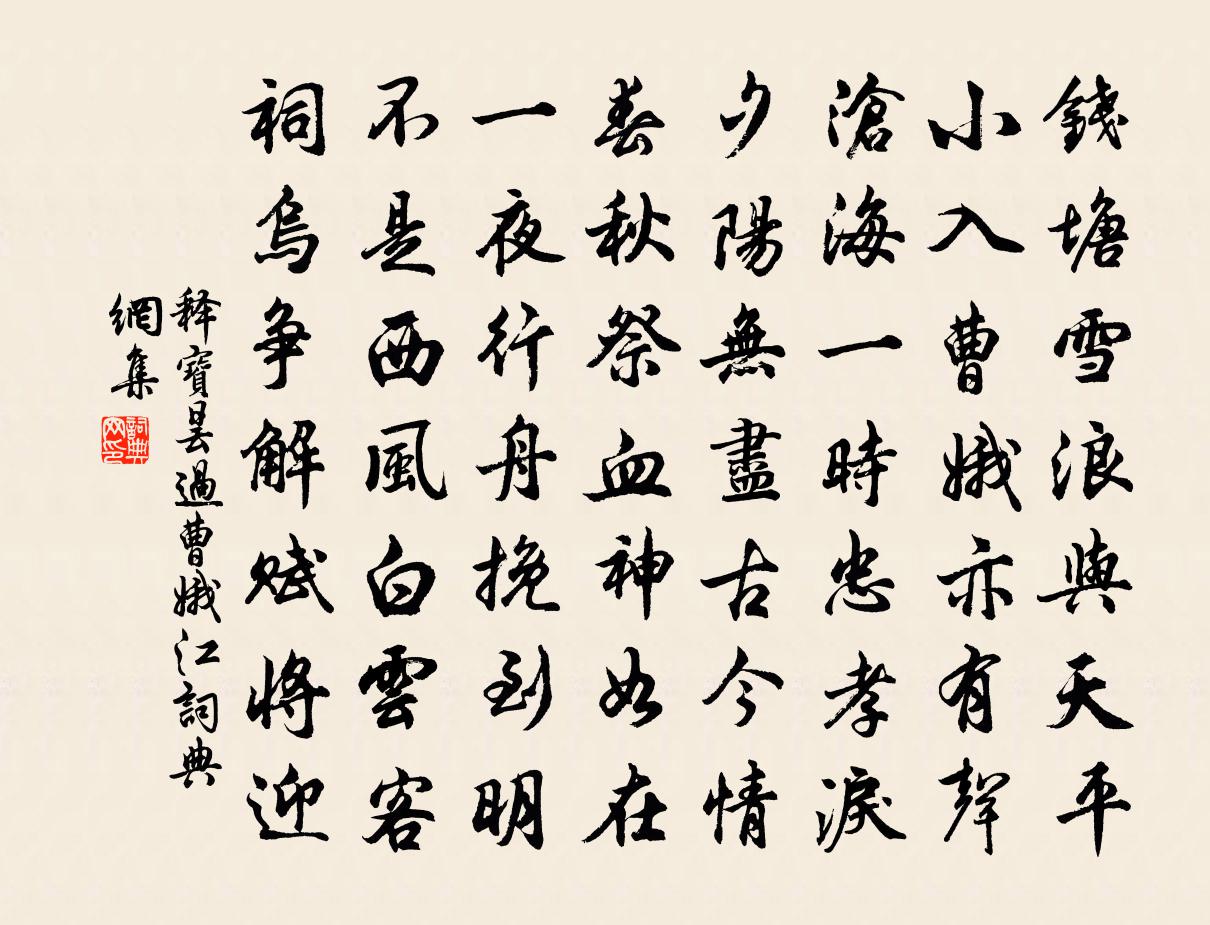 錢塘雪浪與天平
小入曹娥亦有聲
滄海一時忠孝淚
夕陽無盡古今情
春秋祭血神如在
一夜行舟挽到明
不是西風白雲客
祠烏爭解賦將迎
释寶昙過曹娥江詞典
網集
詞典
网印